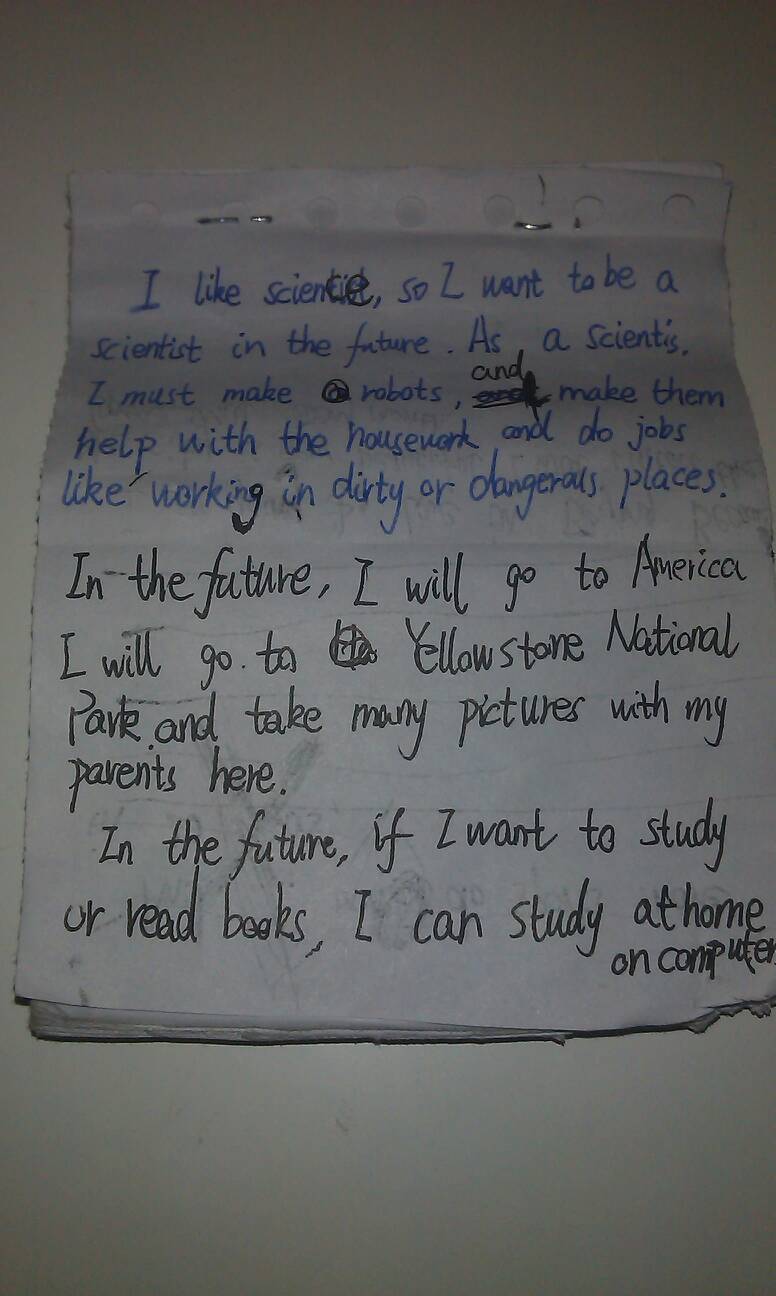 I like science, so I want to be a
scientist in the future. As a scientis,
I must make robots, and make them
help with the housework and do jobs
like working in dirty or dangerous places.
In the future, I will go to America
I will go to Yellowstone National
Park and take many pictures with my
parents here.
In the future, if I want to study
or read books, I can study at home
on computer